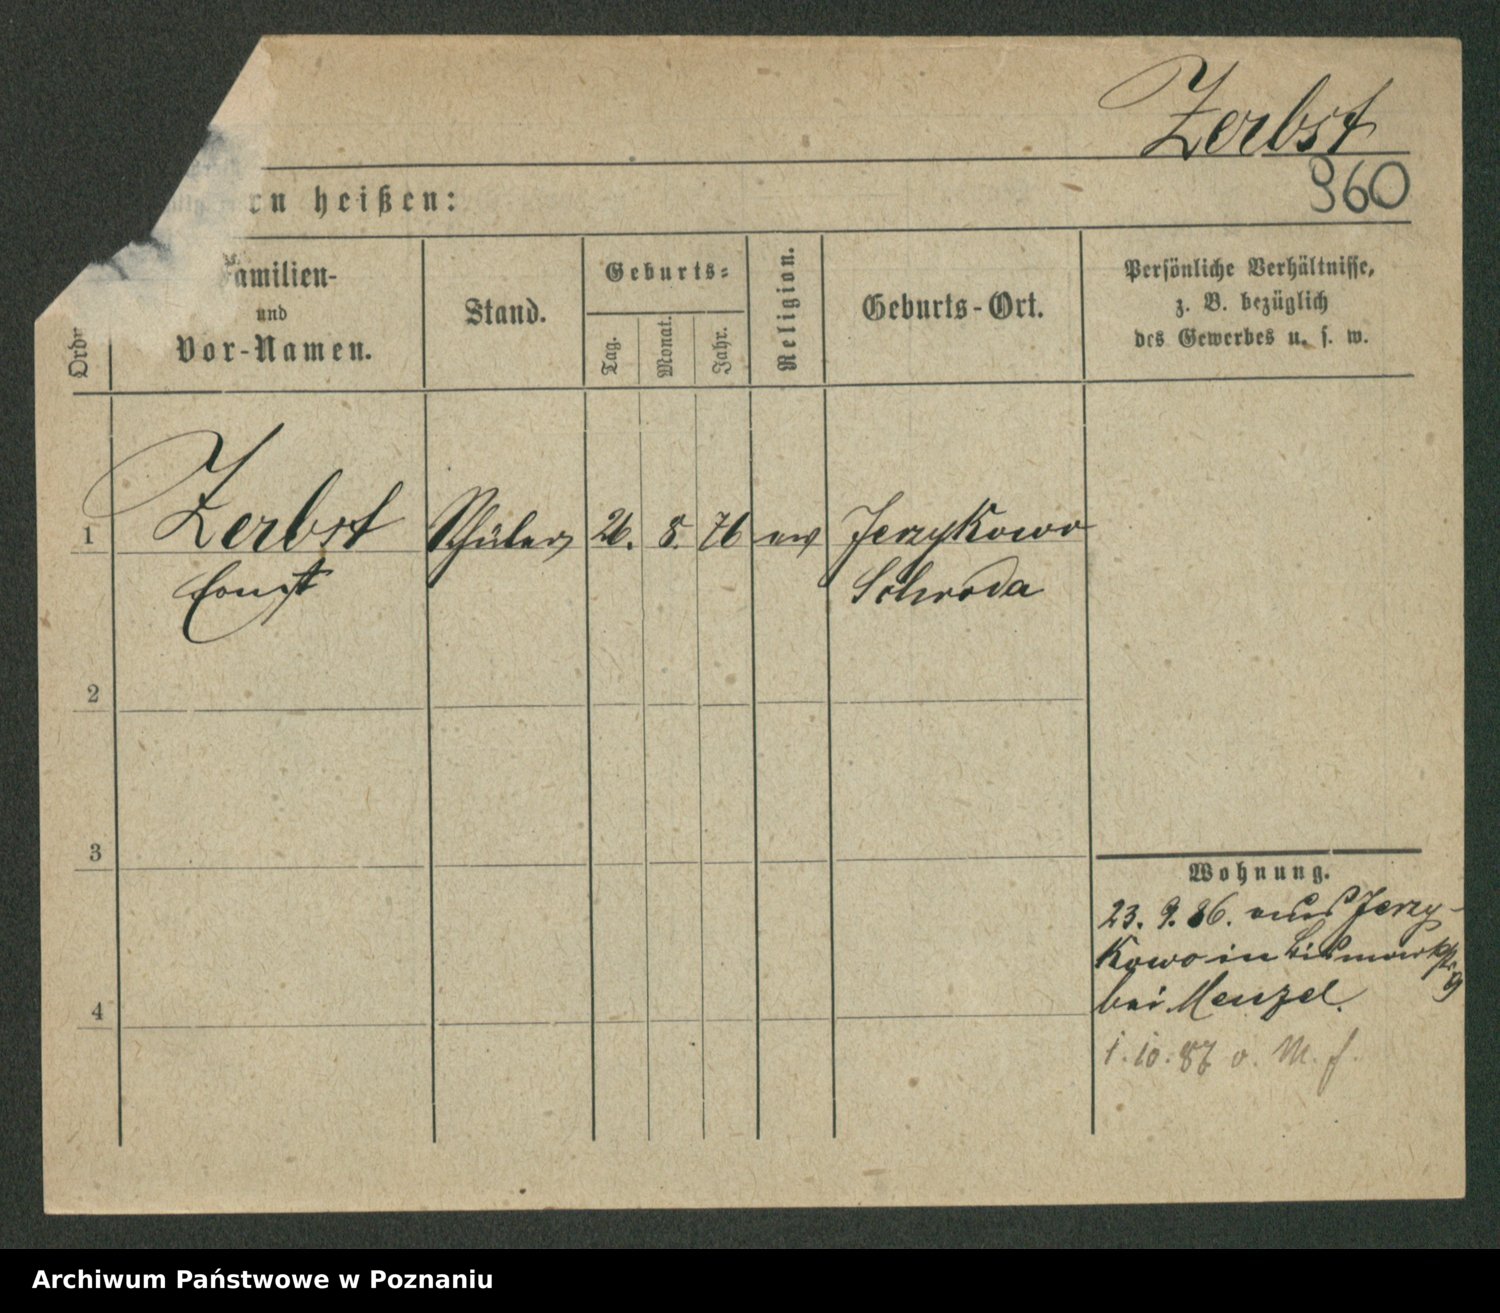 Zerbst
960
rn heißen:
Ordn
Familien-
und
Vor-Namen.
Stand.
Geburts-
Tag.
Monat.
Jahr.
Religion.
Geburts-Ort.
Persönliche Verhältnisse,
z. B. bezüglich
des Gewerbes u. s. w.
1
Zerbst
Schüler
26.
8.
76
ev
Jerzykowo
Ernst
Schroda
2
3
4
Wohnung.
23. 9. 86. aus Jerzy-
kowo in Bismarckstr 9
bei Menzel.
1. 10. 87 v. M. f.
Archiwum Państwowe w Poznaniu